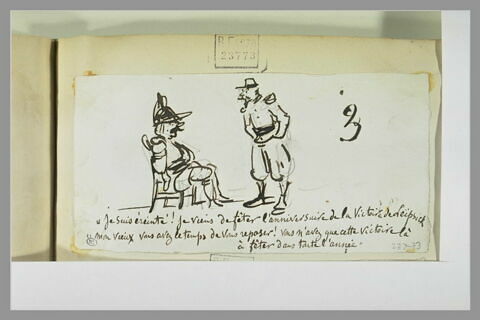 R.F.
23773
3
« je suis éreinté ! je viens de fêter l'anniversaire de la Victoire de Leipsick
mon vieux vous avez le temps de vous reposer ! vous n'avez que cette victoire là
à fêter dans toute l'année .